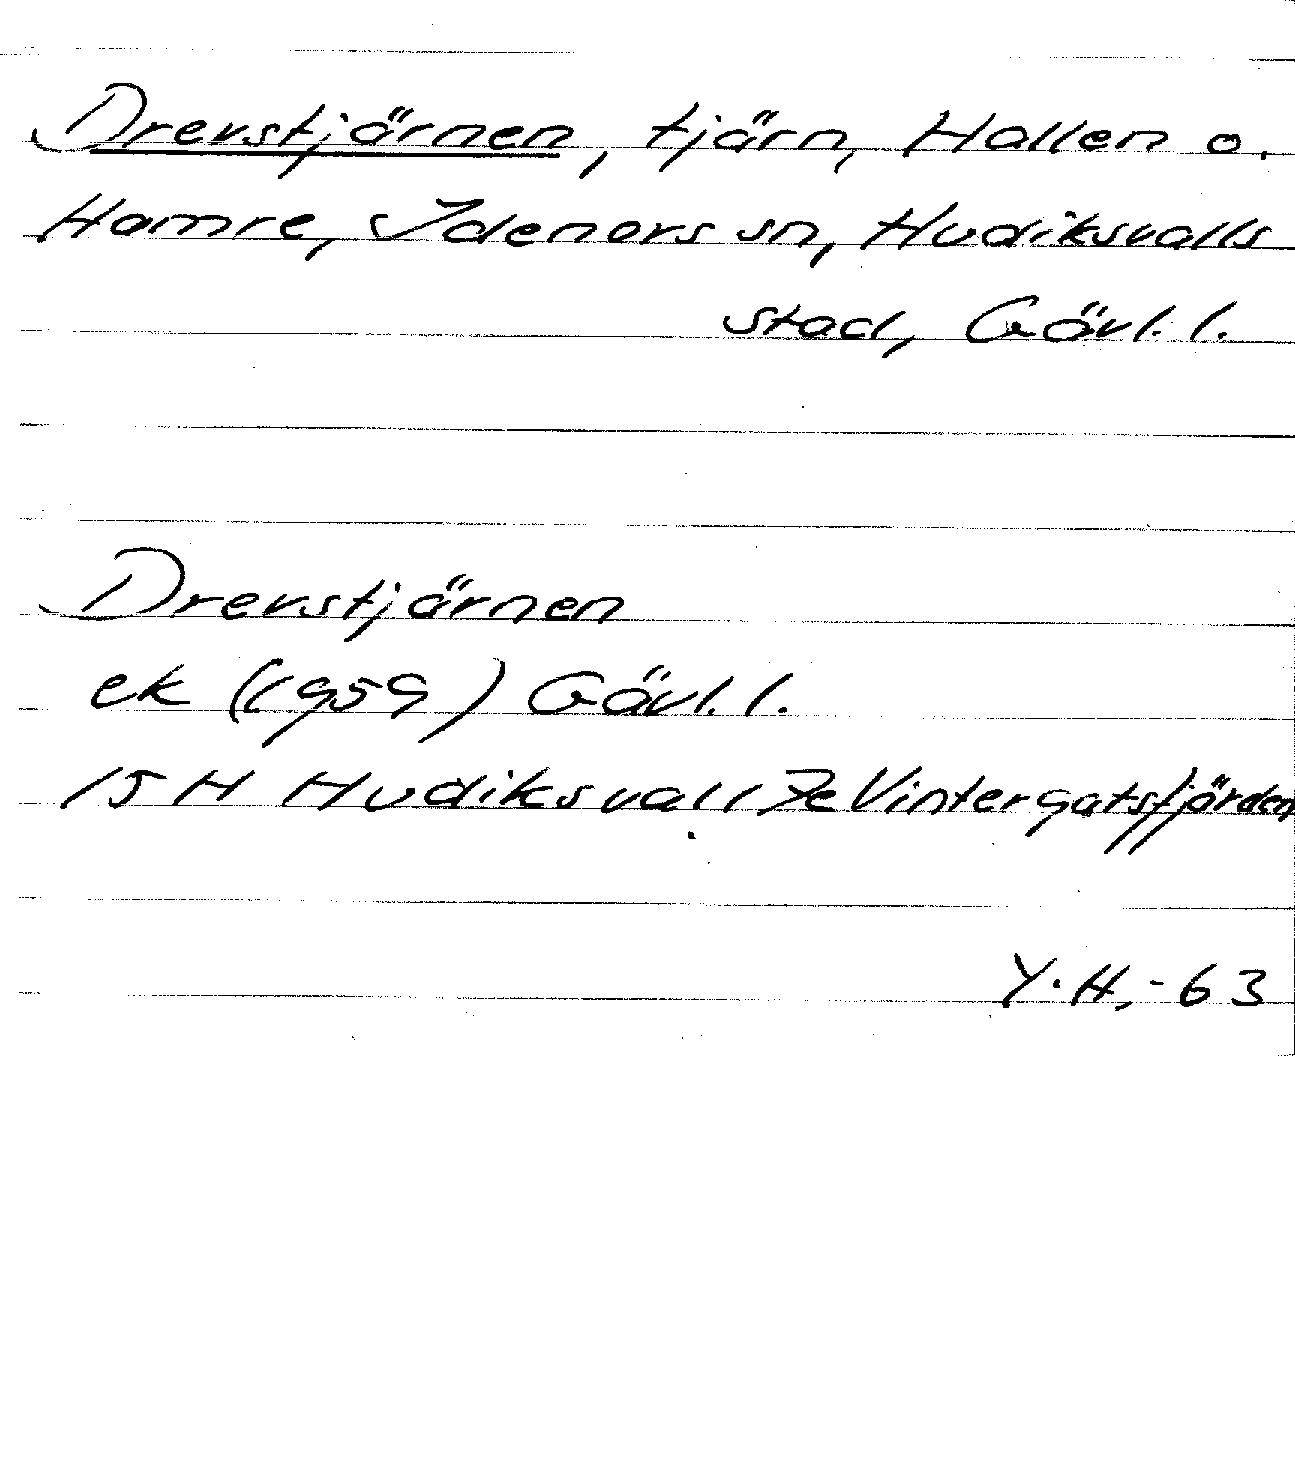 Drevstjärnen, tjärn, Hallen o.
Hamre, Idenors sn, Hudiksvalls
stad, Gävl. l.
Drevstjärnen
ek (1959) Gävl. l.
15 H Hudiksvall 7e Vintergatsfjärden
Y. H, -63